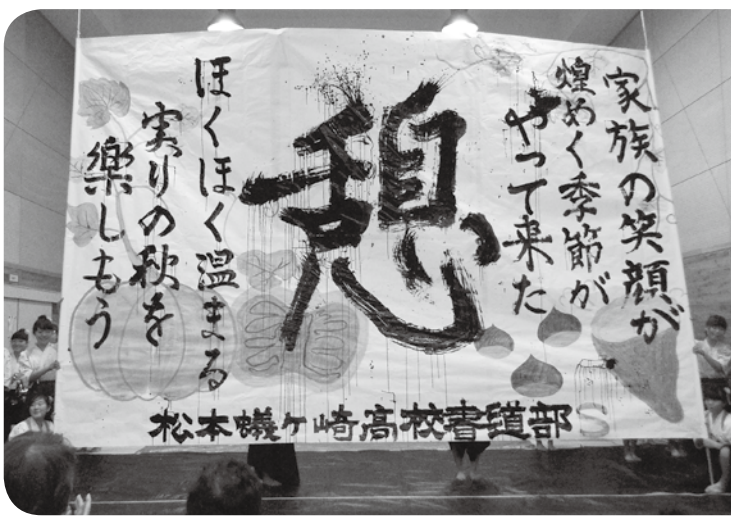 家族の笑顔が
煌めく季節が
やって来た
憩
ほくほく温まる
実りの秋を
楽しもう
松本蟻ヶ崎高校書道部S